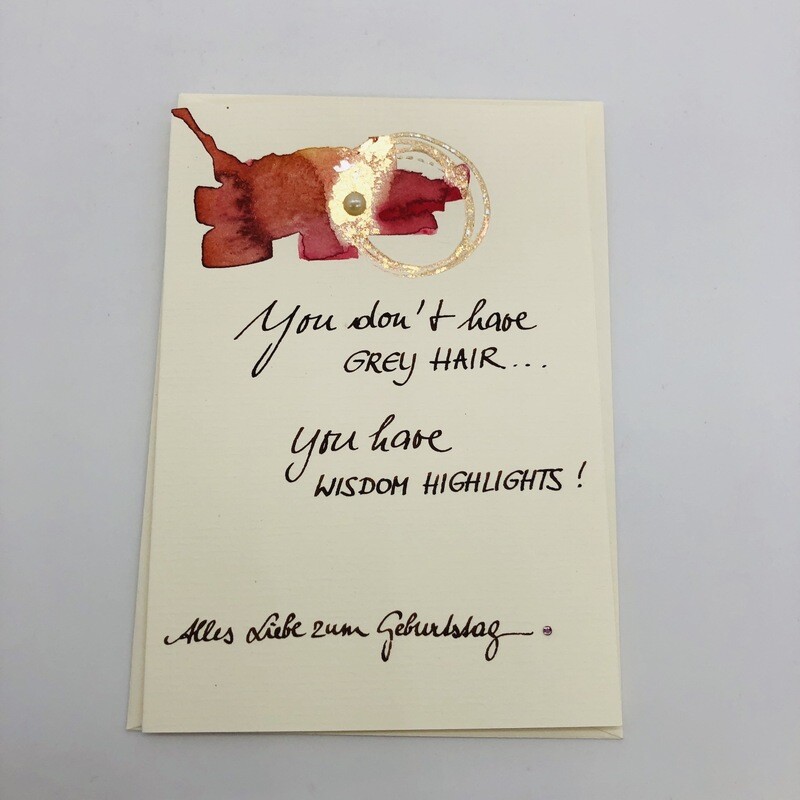 You don't have
GREY HAIR...
you have
WISDOM HIGHLIGHTS!
Alles Liebe zum Geburtstag